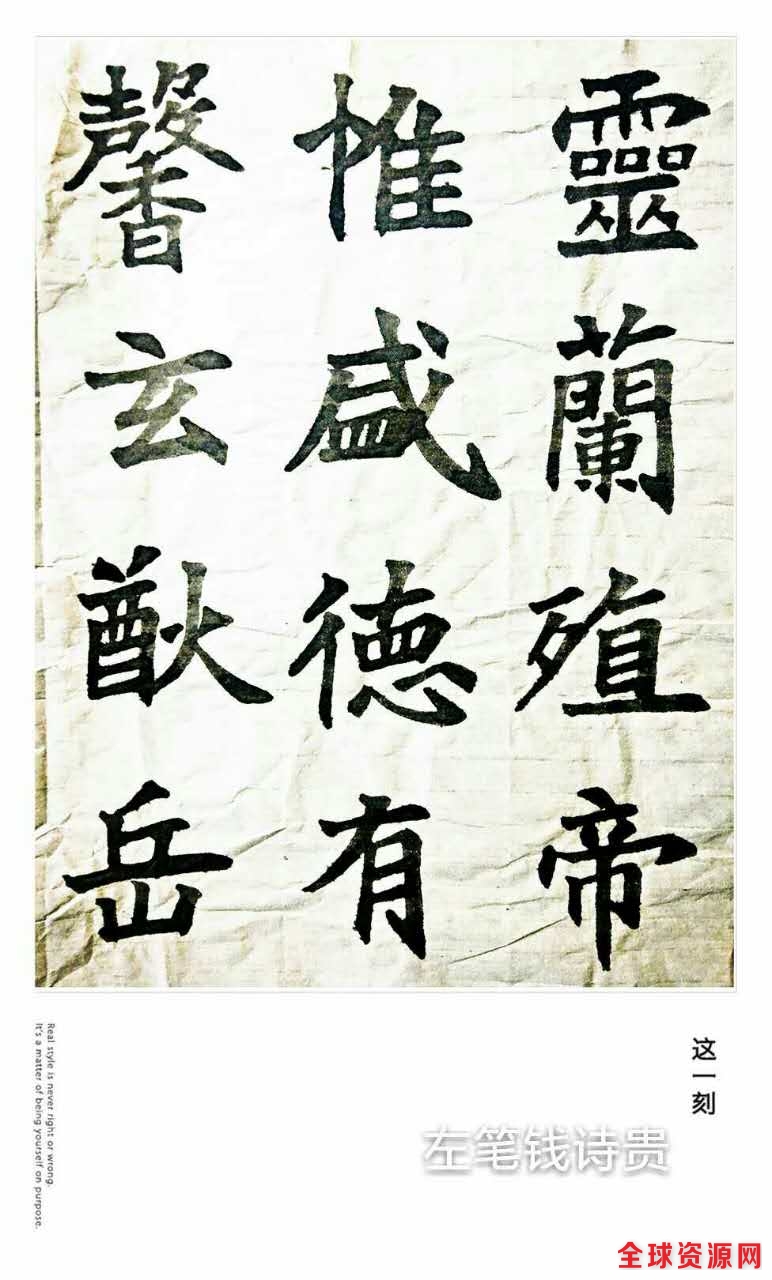 靈蘭殖帝
惟盛德有
馨玄猷岳
这一刻
Real style is never right or wrong.
It's a matter of being yourself on purpose.
左笔钱诗贵
全球资源网